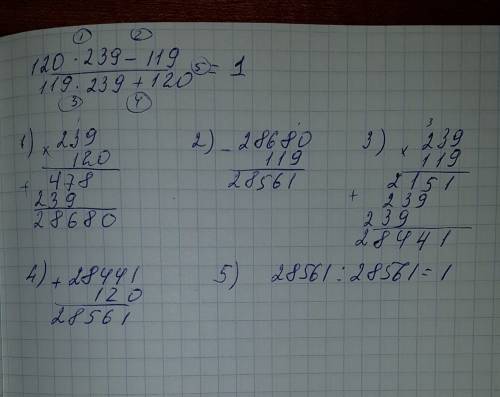 ① ②
120 · 239 – 119
119 · 239 + 120 ⑤ = 1
③ ④
1) × 239
120
+ 478
239
28680
2) – 28680
119
28561
3) × 239
119
2151
+ 239
239
28441
4) + 28441
120
28561
5) 28561 : 28561 = 1